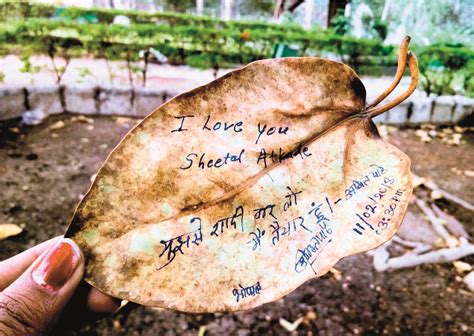 I Love you
Sheetal Atkade
मुझसे शादी कर लो
मैं तैयार हूं।-
11/02/2018
3:30 PM
भोपाल